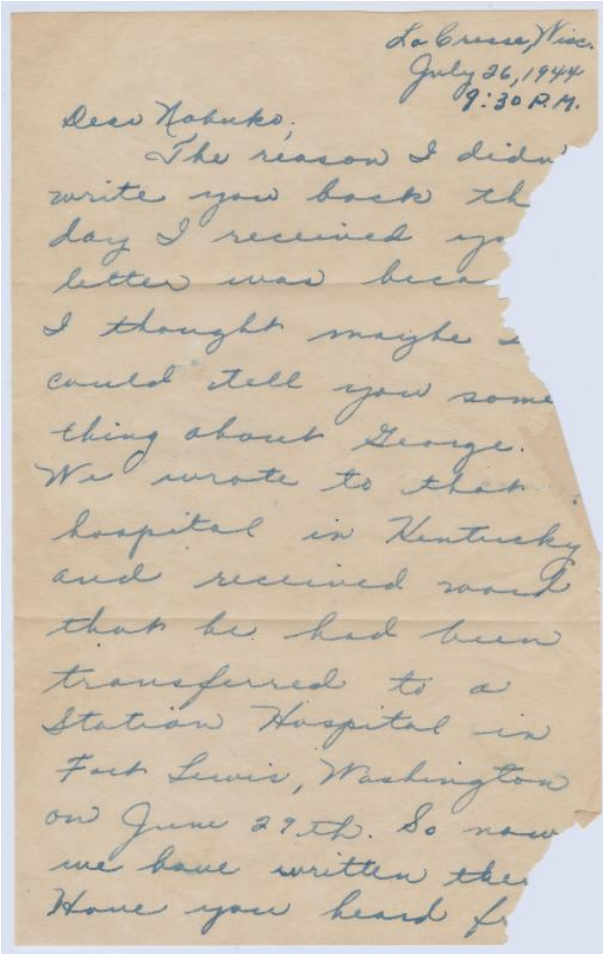 La Crosse, Wisc.
July 26, 1944
9:30 P.M.
Dear Nobuko,
The reason I didn'
write you back th
day I received yo
letter was beca
I thought maybe
could tell you some
thing about George.
We wrote to that
hospital in Kentucky
and received word
that he had been
transferred to a
Station Hospital in
Fort Lewis, Washington
on June 29th. So now
we have written the
Have you heard f